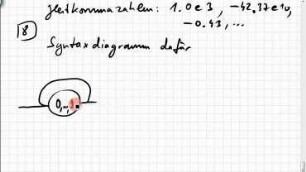 Gleitkommazahlen: 1.0e3, -42.37e10,
-0.43, ...
8
Syntaxdiagramm dafür
0,..,